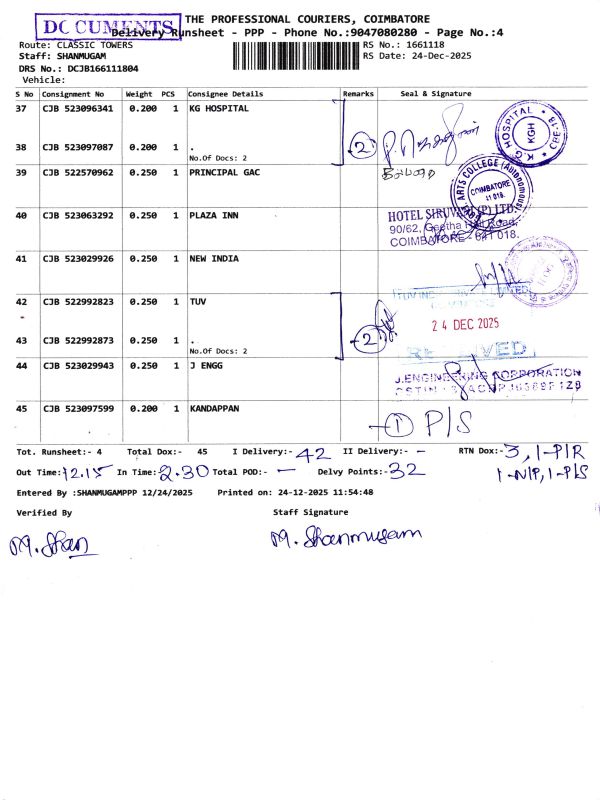 DOCUMENTS
THE PROFESSIONAL COURIERS, COIMBATORE
Delivery Runsheet - PPP - Phone No.:9047080280 - Page No.:4
Route: CLASSIC TOWERS
RS No.: 1661118
Staff: SHANMUGAM
RS Date: 24-Dec-2025
DRS No.: DCJB166111804
Vehicle:
S No Consignment No Weight PCS Consignee Details Remarks Seal & Signature
37 CJB 523096341 0.200 1 KG HOSPITAL
K.G. HOSPITAL
KGH
CBE-18
38 CJB 523097087 0.200 1 .
2
No.Of Docs: 2
39 CJB 522570962 0.250 1 PRINCIPAL GAC
ARTS COLLEGE (Autonomous)
COIMBATORE
641 018.
40 CJB 523063292 0.250 1 PLAZA INN
HOTEL SIRUVANI (P) LTD.
90/62, Geetha Hall Road,
COIMBATORE - 641 018.
41 CJB 523029926 0.250 1 NEW INDIA
42 CJB 522992823 0.250 1 TUV
24 DEC 2025
43 CJB 522992873 0.250 1 .
2
No.Of Docs: 2
RECEIVED
44 CJB 523029943 0.250 1 J ENGG
J.ENGINEERING CORPORATION
45 CJB 523097599 0.200 1 KANDAPPAN
-1 P/S
Tot. Runsheet:- 4 Total Dox:- 45 I Delivery:- 42 II Delivery:- - RTN Dox:- 3, 1-P/R
Out Time:- 12.15 In Time:- 2.30 Total POD:- - Delvy Points:- 32 1-N/P, 1-P/S
Entered By :SHANMUGAMPPP 12/24/2025 Printed on: 24-12-2025 11:54:48
Verified By Staff Signature
M. Shan M. Shanmugam